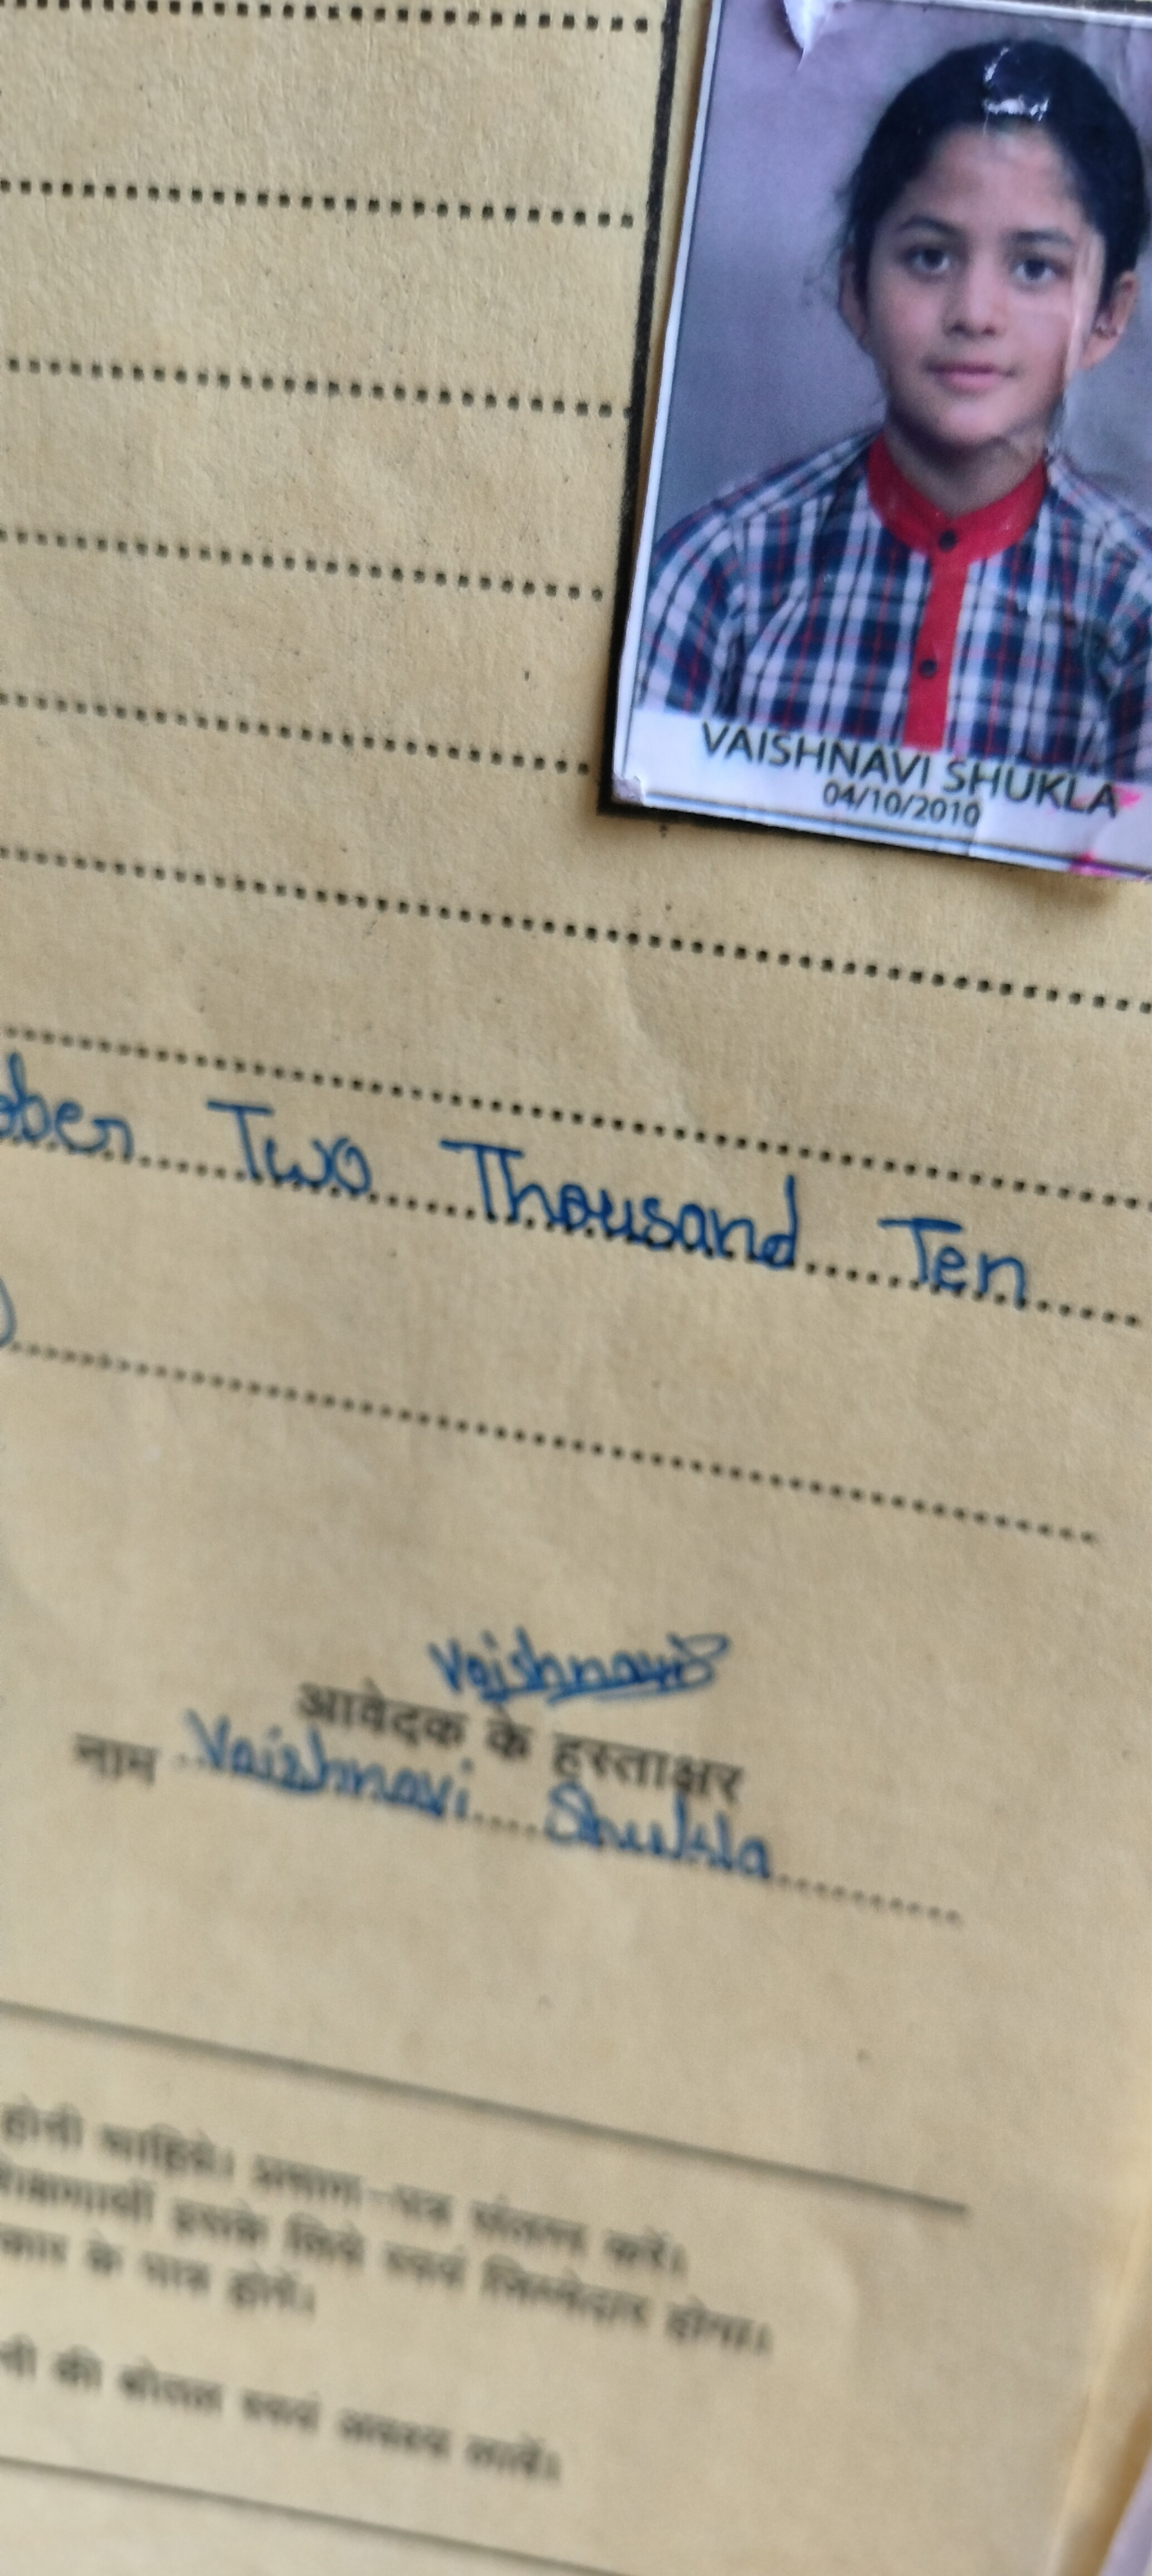 VAISHNAVI SHUKLA
04/10/2010
ober Two Thousand Ten
Vaishnavi
आवेदक के हस्ताक्षर
नाम Vaishnavi Shukla
होनी चाहिये। प्रमाण-पत्र संलग्न करें।
इसके लिये स्वयं जिम्मेदार होगा।
के पात्र होगें।
की बोतल स्वयं अवश्य लावें।